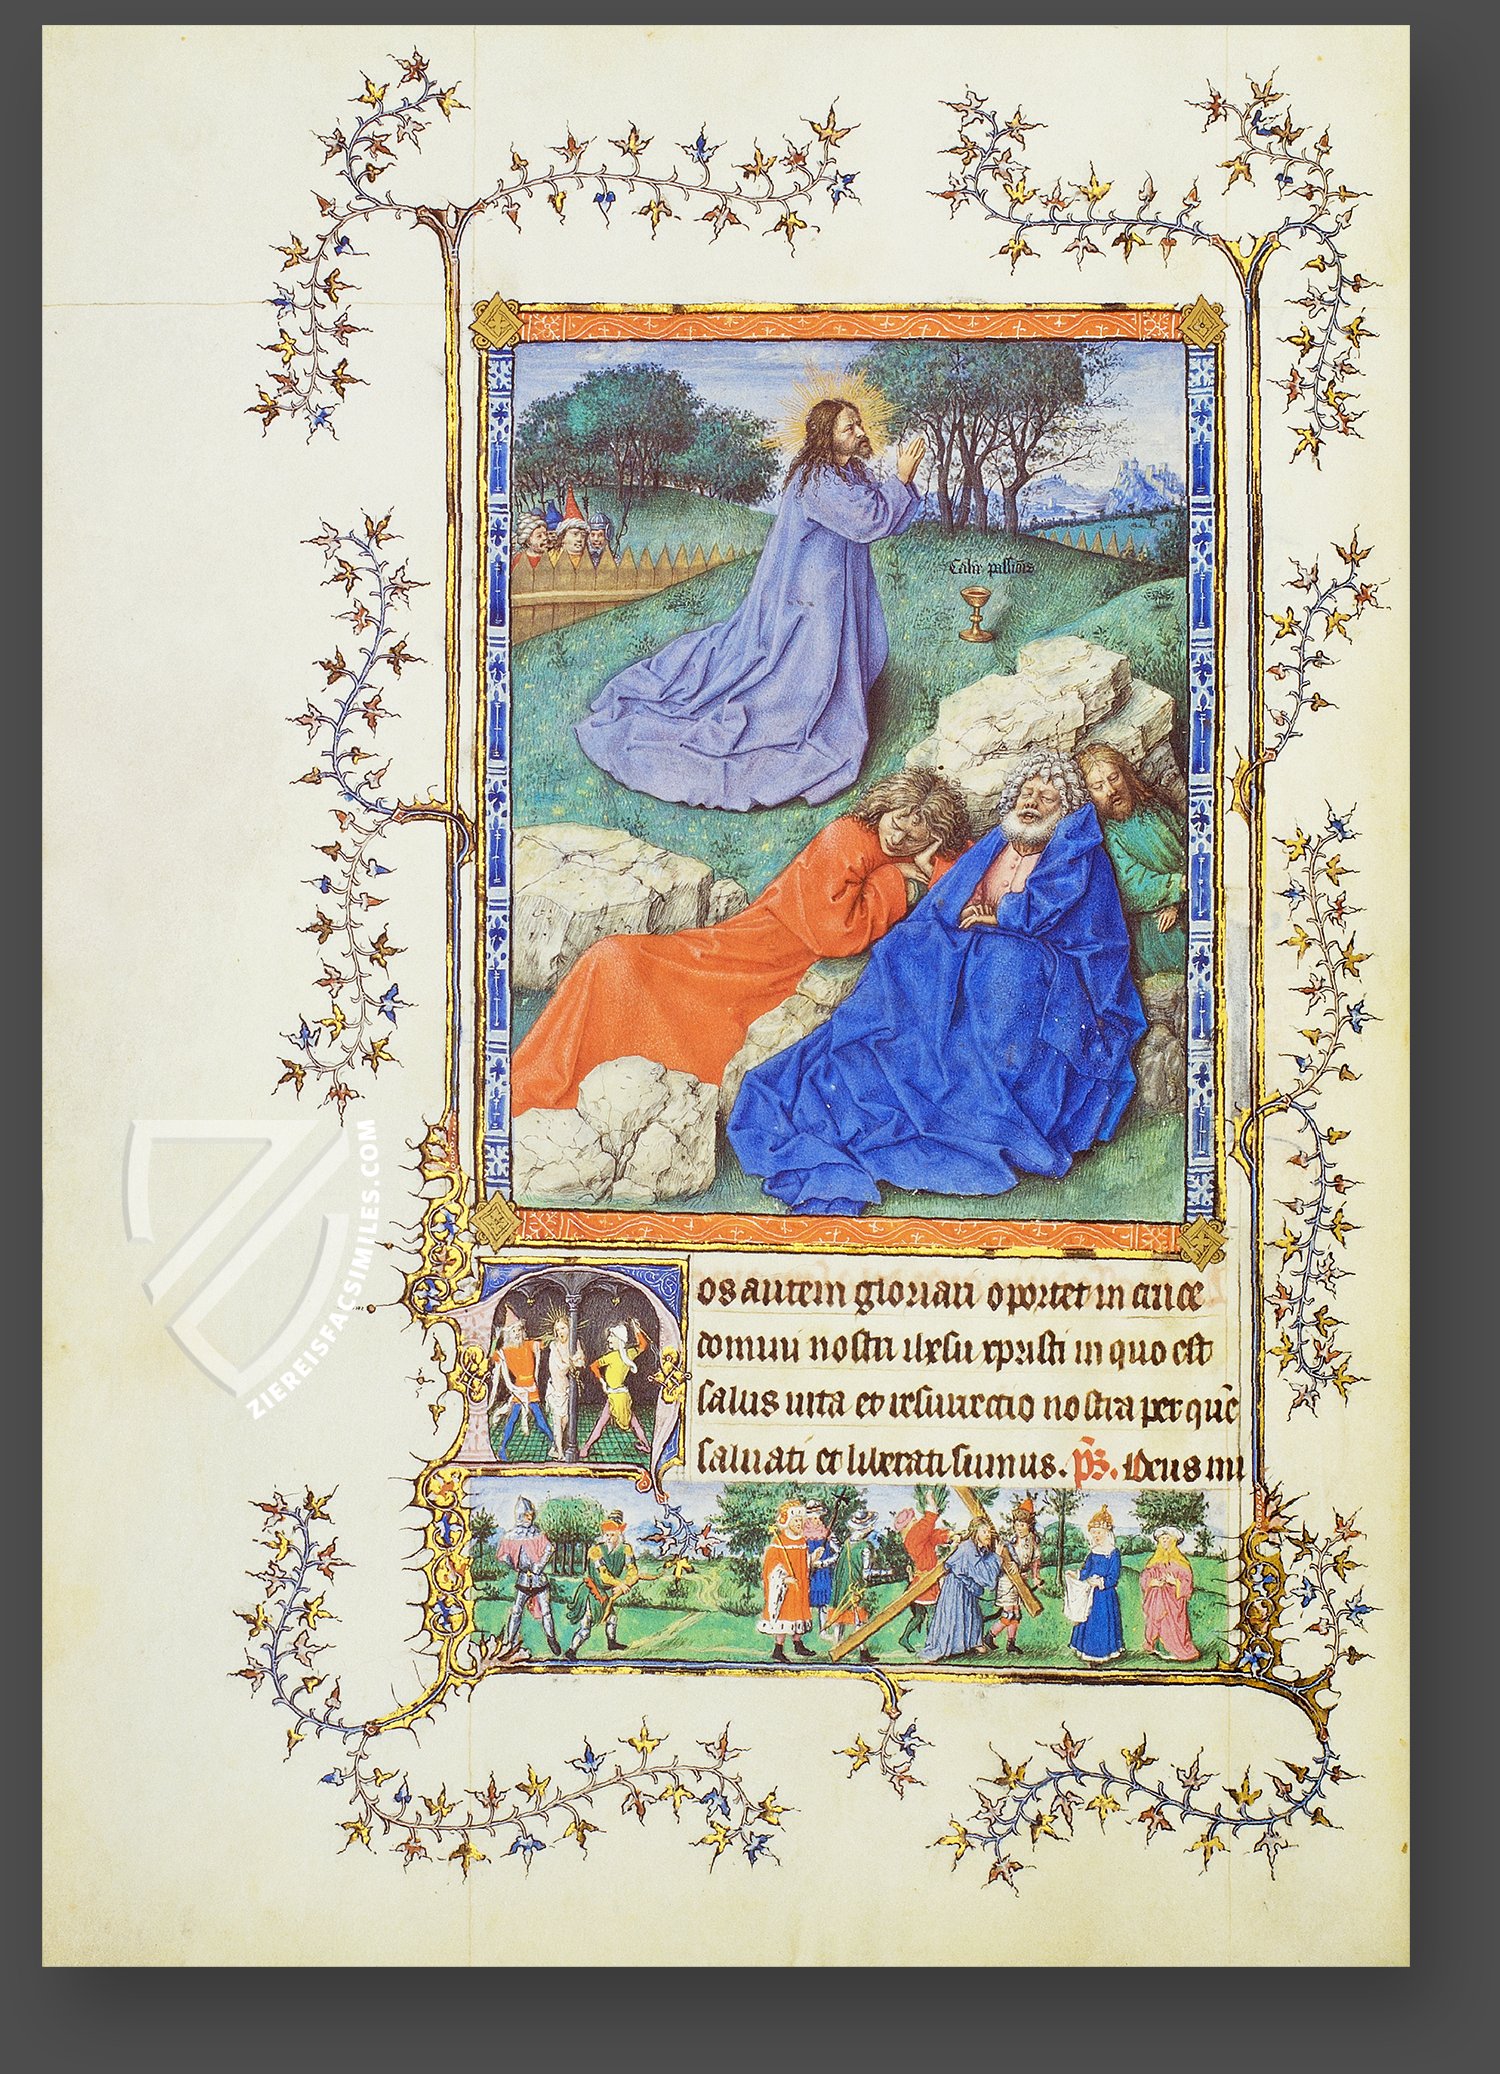 Calix passionis
os autem gloriari oportet in cruce
domini nostri ihesu xpristi in quo est
salus uita et resurrectio nostra per quē
saluati et liberati sumus. ps. Deus mi
ZIEREISFACSIMILES.COM